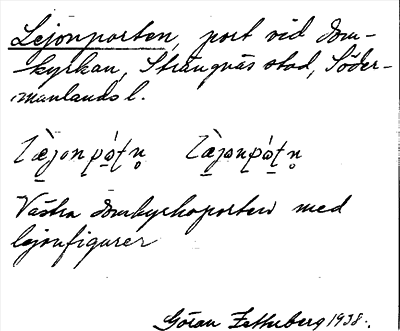 Lejonporten, port vid dom-
kyrkan, Strängnäs stad, Söder-
manlands l.
Västra domkyrkoporten med
lejonfigurer
Göran Zetterberg 1938.